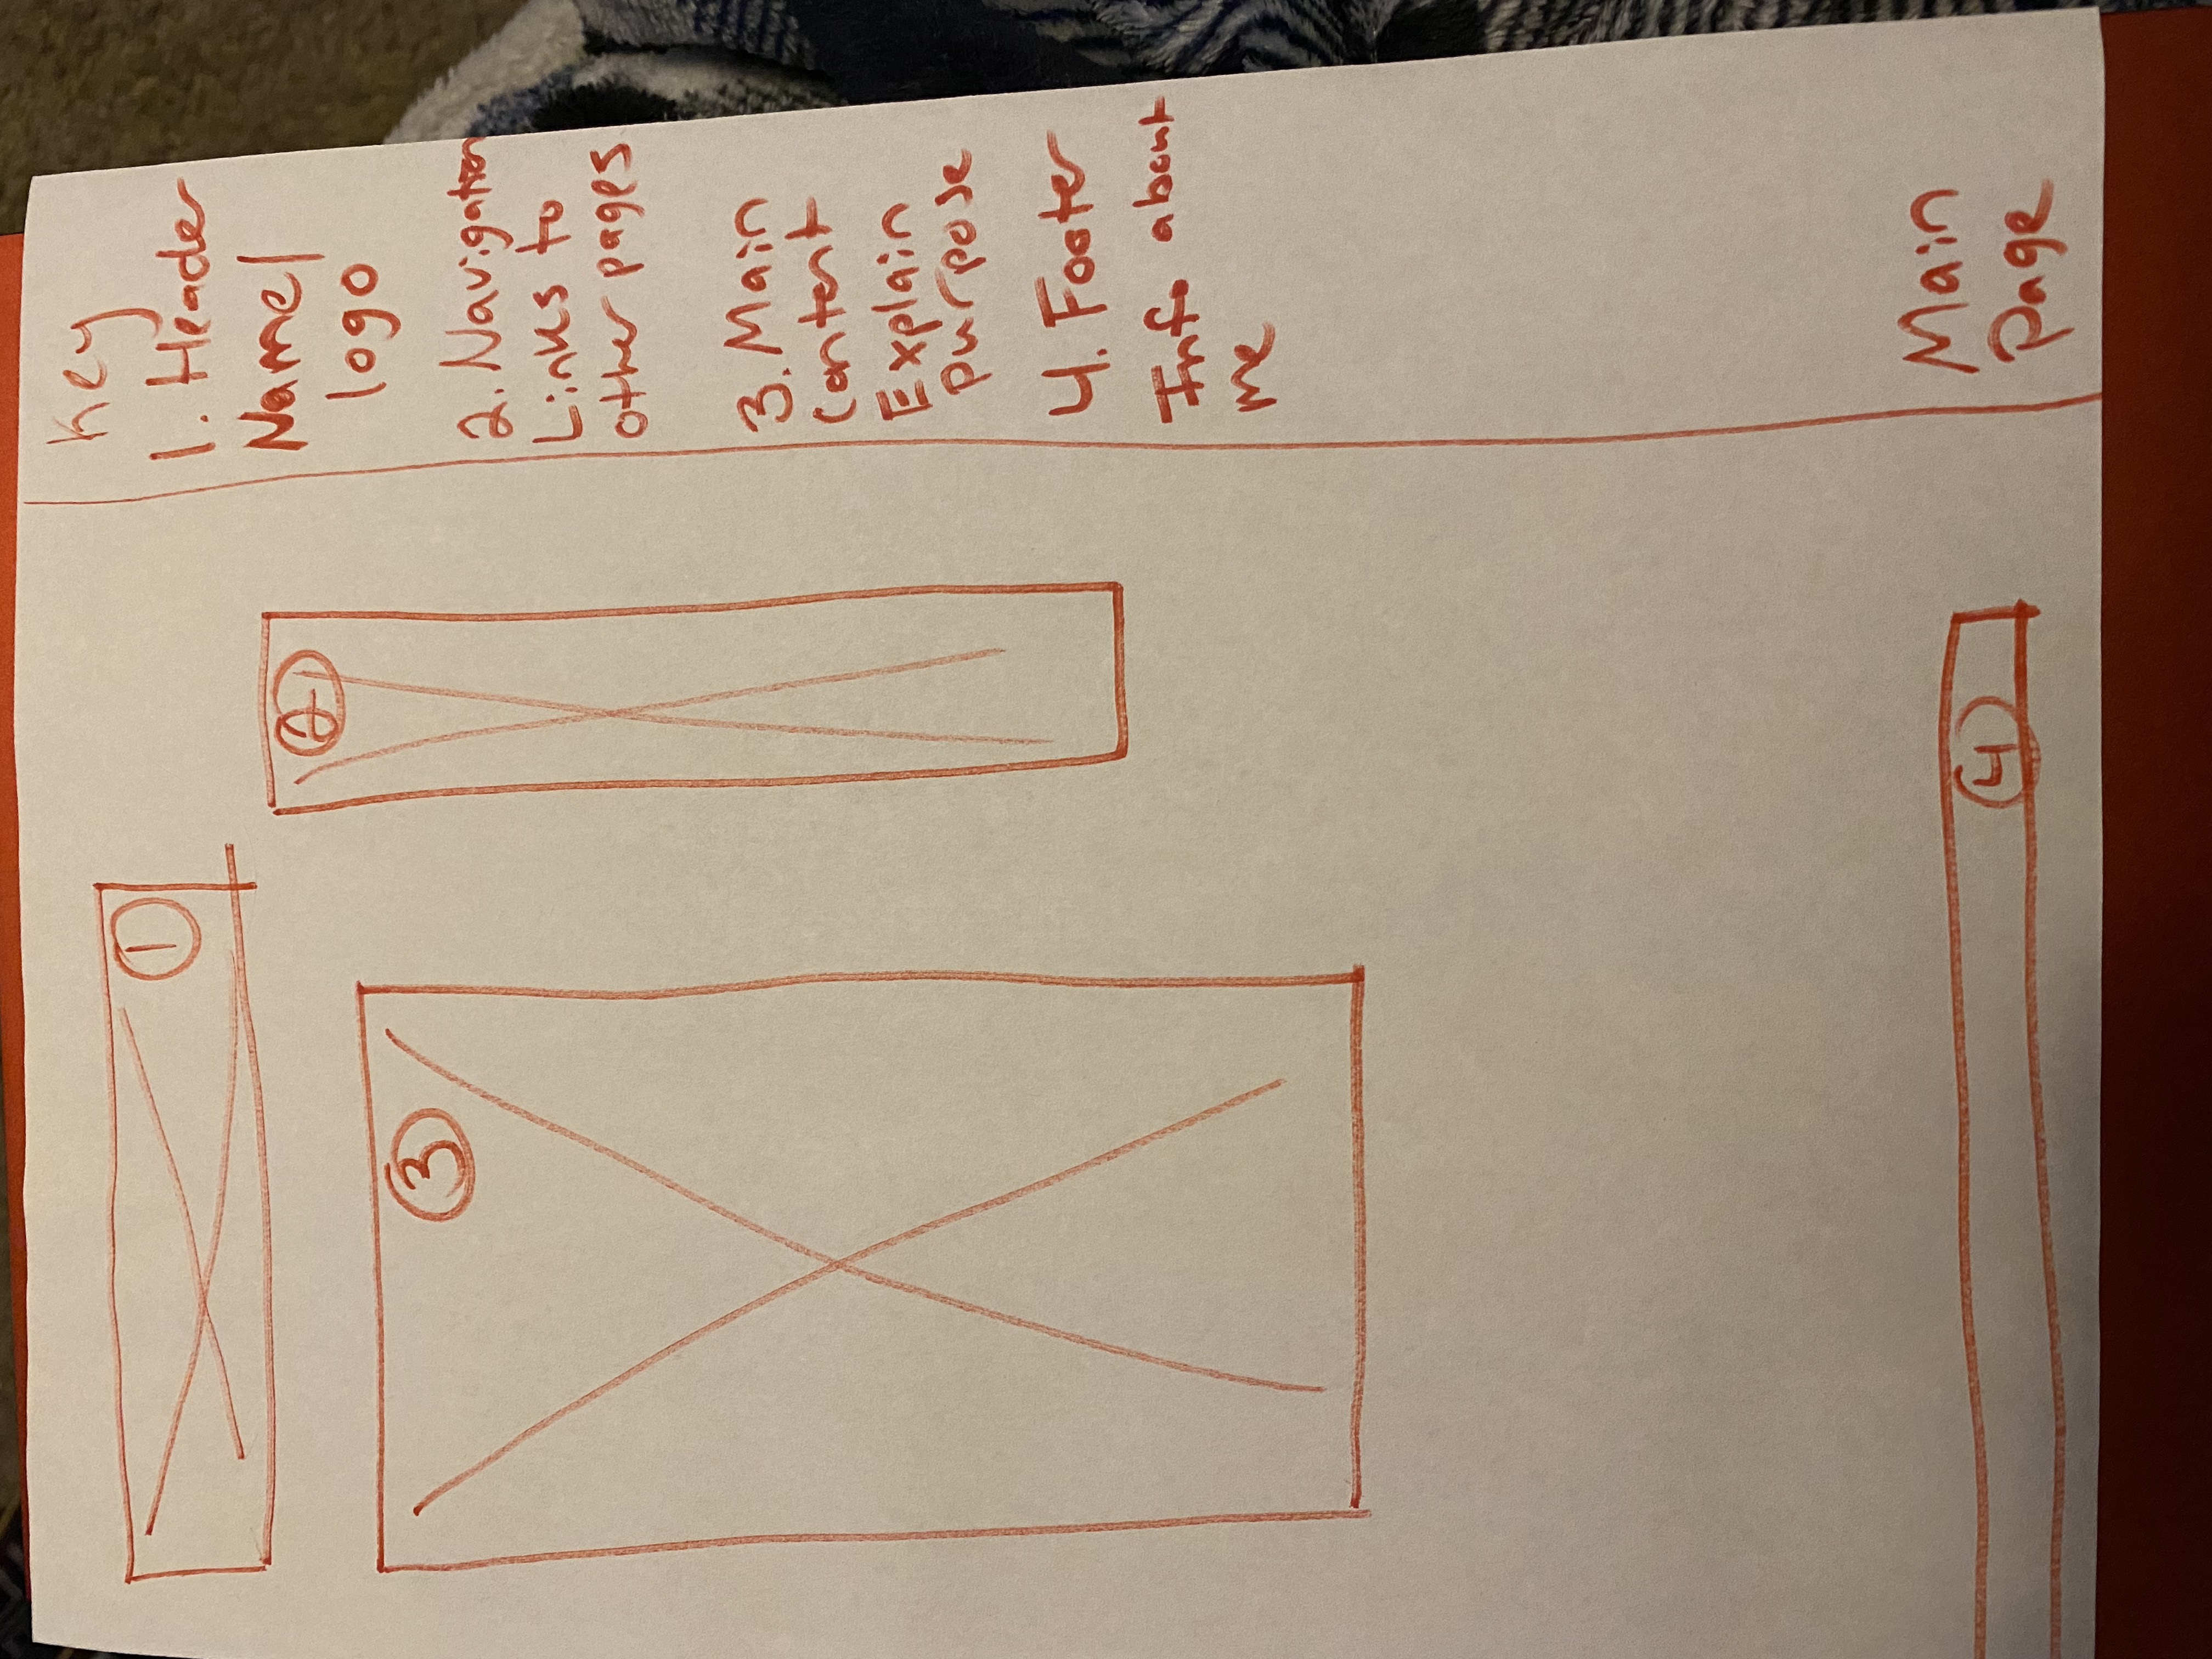 1
2
3
4
Key
1. Header
Name/
logo
2. Navigation
Links to
other pages
3. Main
Content
Explain
purpose
4. Footer
Info about
me
Main
Page